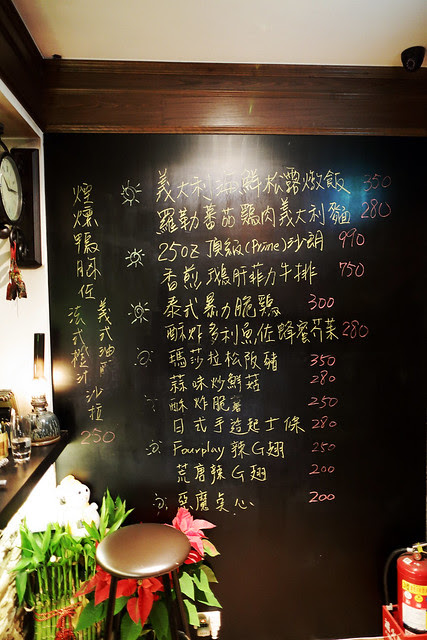 義大利海鮮松露燉飯 350
羅勒蕃茄鷄肉義大利麵 280
25oz 頂級(Prime)沙朗 990
香煎鵝肝菲力牛排 750
泰式暴力脆鷄 300
酥炸多利魚佐蜂蜜芥茉 280
瑪莎拉松阪豬 350
蒜味炒鮮菇 280
酥炸脆薯 250
日式手造起士條 280
Fourplay 辣G翅 250
荒唐辣G翅 200
惡魔点心 200
煙燻鴨胸佐
義式油
法式橙汁沙拉
250